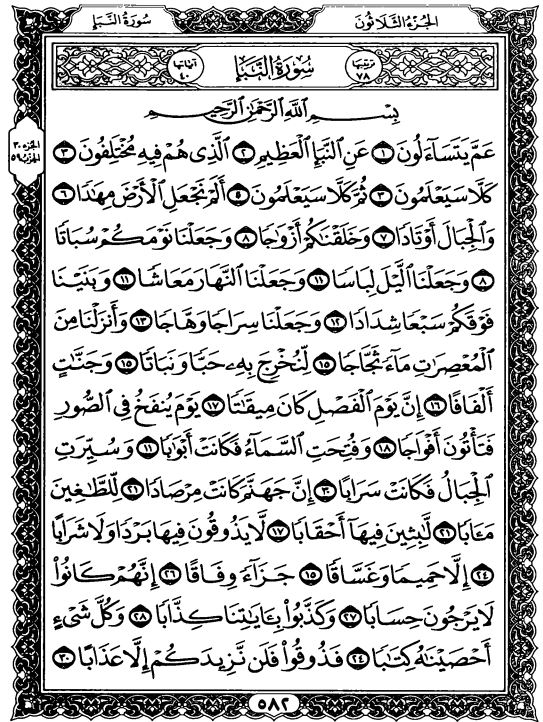 سُورَةُ النَّبَإِ الجُزءُ الثَّلاثُونَ
ترتيبها ٧٨ سُورَةُ النَّبَإِ آياتها ٤٠
الجزء ٣٠
الحزب ٥٩
بِسْمِ اللَّهِ الرَّحْمَٰنِ الرَّحِيمِ
عَمَّ يَتَسَآءَلُونَ ١ عَنِ النَّبَإِ الْعَظِيمِ ٢ الَّذِى هُمْ فِيهِ مُخْتَلِفُونَ ٣
كَلَّا سَيَعْلَمُونَ ٣ ثُمَّ كَلَّا سَيَعْلَمُونَ ٥ أَلَمْ نَجْعَلِ الْأَرْضَ مِهَٰدًا ٦
وَالْجِبَالَ أَوْتَادًا ٧ وَخَلَقْنَٰكُمْ أَزْوَٰجًا ٨ وَجَعَلْنَا نَوْمَكُمْ سُبَاتًا
٨ وَجَعَلْنَا الَّيْلَ لِبَاسًا ١١ وَجَعَلْنَا النَّهَارَ مَعَاشًا ١١ وَبَنَيْنَا
فَوْقَكُمْ سَبْعًا شِدَادًا ١٢ وَجَعَلْنَا سِرَاجًا وَهَّاجًا ١٣ وَأَنزَلْنَا مِنَ
الْمُعْصِرَٰتِ مَآءً ثَجَّاجًا ١٥ لِّنُخْرِجَ بِهِۦ حَبًّا وَنَبَاتًا ١٥ وَجَنَّٰتٍ
أَلْفَافًا ١٦ إِنَّ يَوْمَ الْفَصْلِ كَانَ مِيقَٰتًا ١٧ يَوْمَ يُنفَخُ فِى الصُّورِ
فَتَأْتُونَ أَفْوَاجًا ١٨ وَفُتِحَتِ السَّمَآءُ فَكَانَتْ أَبْوَٰبًا ١١ وَسُيِّرَتِ
الْجِبَالُ فَكَانَتْ سَرَابًا ٣٠ إِنَّ جَهَنَّمَ كَانَتْ مِرْصَادًا ٢١ لِّلطَّٰغِينَ
مَـَٔابًا ٢١ لَّٰبِثِينَ فِيهَآ أَحْقَابًا ١٧ لَّا يَذُوقُونَ فِيهَا بَرْدًا وَلَا شَرَابًا
٢٤ إِلَّا حَمِيمًا وَغَسَّاقًا ١٥ جَزَآءً وِفَاقًا ٢٦ إِنَّهُمْ كَانُوا۟
لَا يَرْجُونَ حِسَابًا ٢٧ وَكَذَّبُوا۟ بِـَٔايَٰتِنَا كِذَّابًا ٢٨ وَكُلَّ شَىْءٍ
أَحْصَيْنَٰهُ كِتَٰبًا ٢٤ فَذُوقُوا۟ فَلَن نَّزِيدَكُمْ إِلَّا عَذَابًا ٣٠
٥٨٢